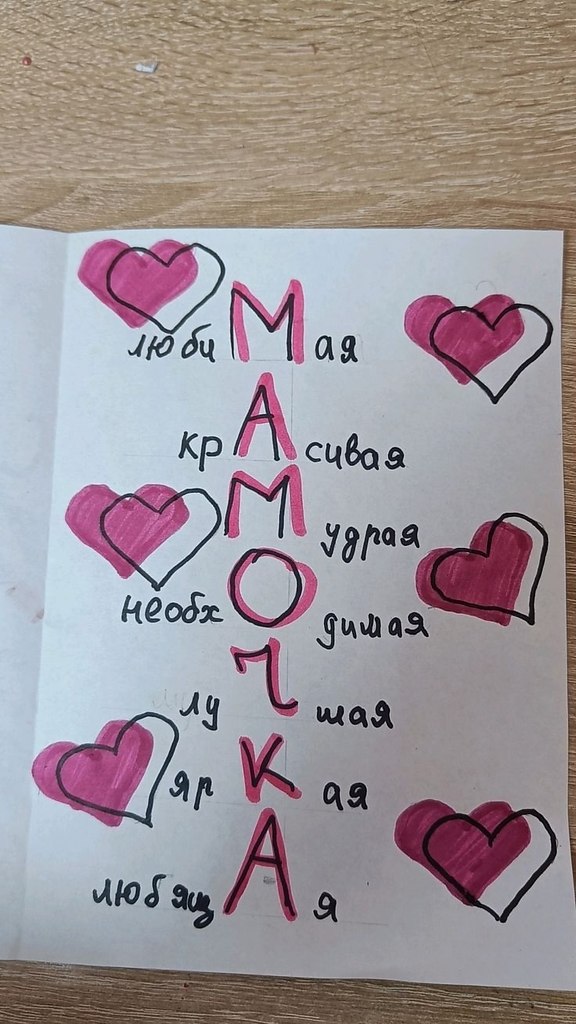 любиМая
крАсивая
Мудрая
необхОдимая
луЧшая
ярКая
любящАя